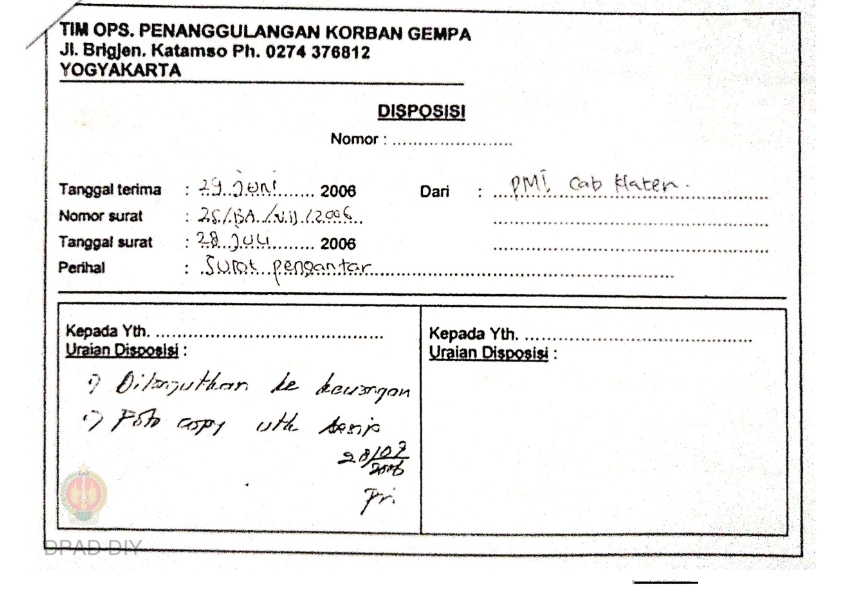 TIM OPS. PENANGGULANGAN KORBAN GEMPA
Jl. Brigjen. Katamso Ph. 0274 376812
YOGYAKARTA
DISPOSISI
Nomor : ........................
Tanggal terima : 29 juni ....... 2006 Dari : PMI Cab Klaten.
Nomor surat : 25/BA/VII/2006
Tanggal surat : 28 juli ......... 2006
Perihal : Surat pengantar
Kepada Yth. ...............................................
Uraian Disposisi :
Dilanjutkan ke keuangan
Foto copy utk arsip
28/07
2006
Fri.
Kepada Yth. ...............................................
Uraian Disposisi :
DPAD DIY